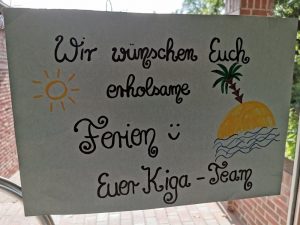 Wir wünschen Euch
erholsame
Ferien
Euer Kiga-Team